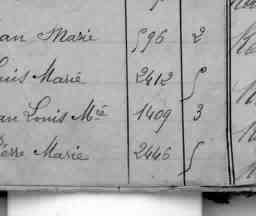 an Marie 596 2
uis Marie 2412 5
an Louis Mie 1409 3
erre Marie 2446 5